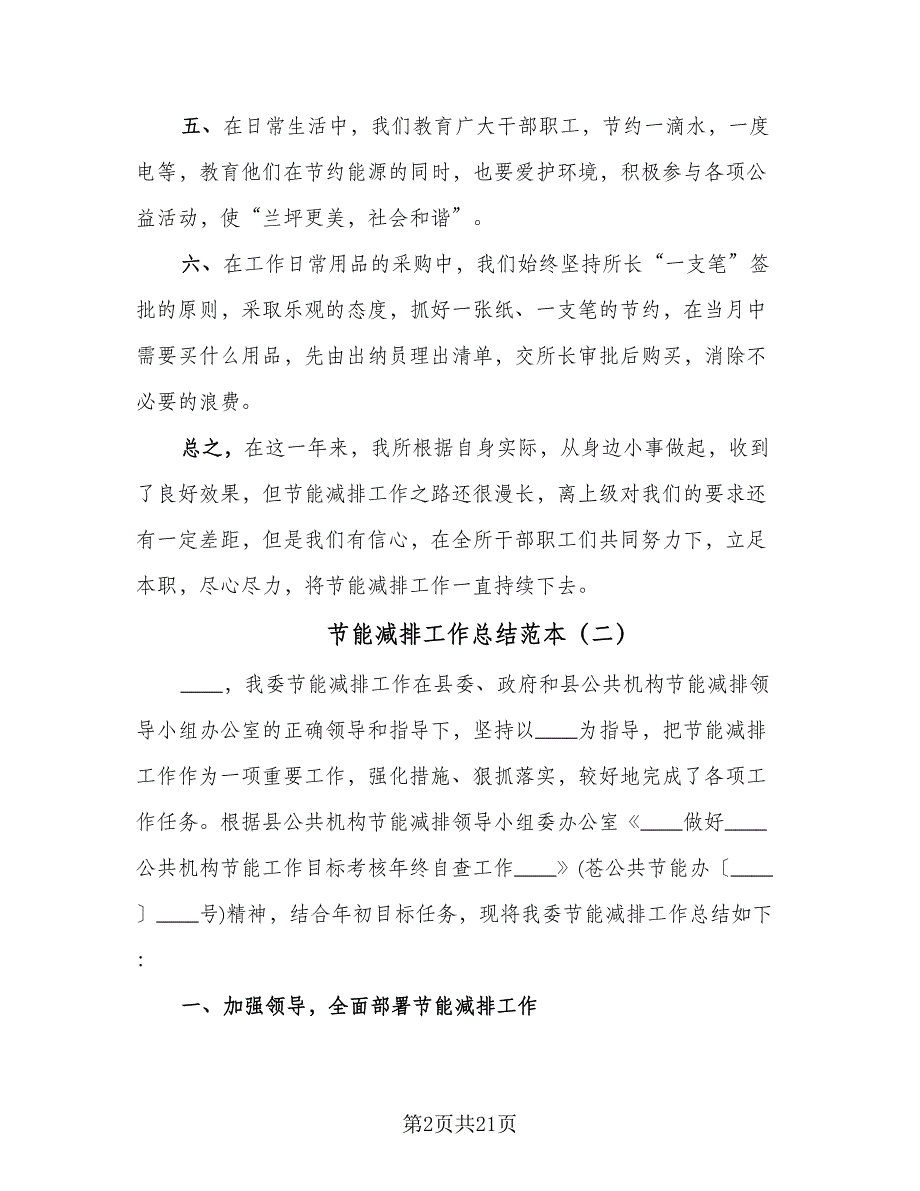 五、在日常生活中，我们教育广大干部职工，节约一滴水，一度
电等，教育他们在节约能源的同时，也要爱护环境，积极参与各项公
益活动，使“兰坪更美，社会和谐”。
六、在工作日常用品的采购中，我们始终坚持所长“一支笔”签
批的原则，采取乐观的态度，抓好一张纸、一支笔的节约，在当月中
需要买什么用品，先由出纳员理出清单，交所长审批后购买，消除不
必要的浪费。
总之，在这一年来，我所根据自身实际，从身边小事做起，收到
了良好效果，但节能减排工作之路还很漫长，离上级对我们的要求还
有一定差距，但是我们有信心，在全所干部职工们共同努力下，立足
本职，尽心尽力，将节能减排工作一直持续下去。
节能减排工作总结范本（二）
____，我委节能减排工作在县委、政府和县公共机构节能减排领
导小组办公室的正确领导和指导下，坚持以____为指导，把节能减排
工作作为一项重要工作，强化措施、狠抓落实，较好地完成了各项工
作任务。根据县公共机构节能减排领导小组委办公室《____做好____
公共机构节能工作目标考核年终自查工作____》(苍公共节能办〔____
〕____号)精神，结合年初目标任务，现将我委节能减排工作总结如下
：
一、加强领导，全面部署节能减排工作
第2页共21页